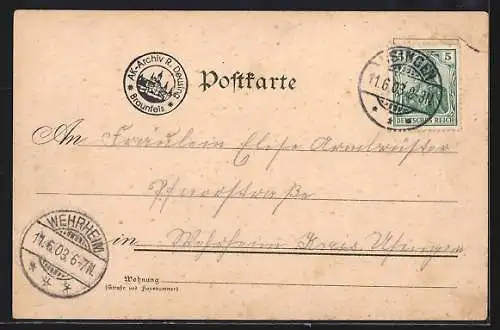 AK-Archiv R. Dewling
Braunfels
Postkarte
USINGEN
11.6.03. 6-7N.
5
DEUTSCHES REICH
An Fräulein Elise Armbrüster
Pfarrstraße
in Wehrheim Kreis Usingen
WEHRHEIM
11.6.03. 6-7N.
Wohnung
(Straße und Hausnummer)